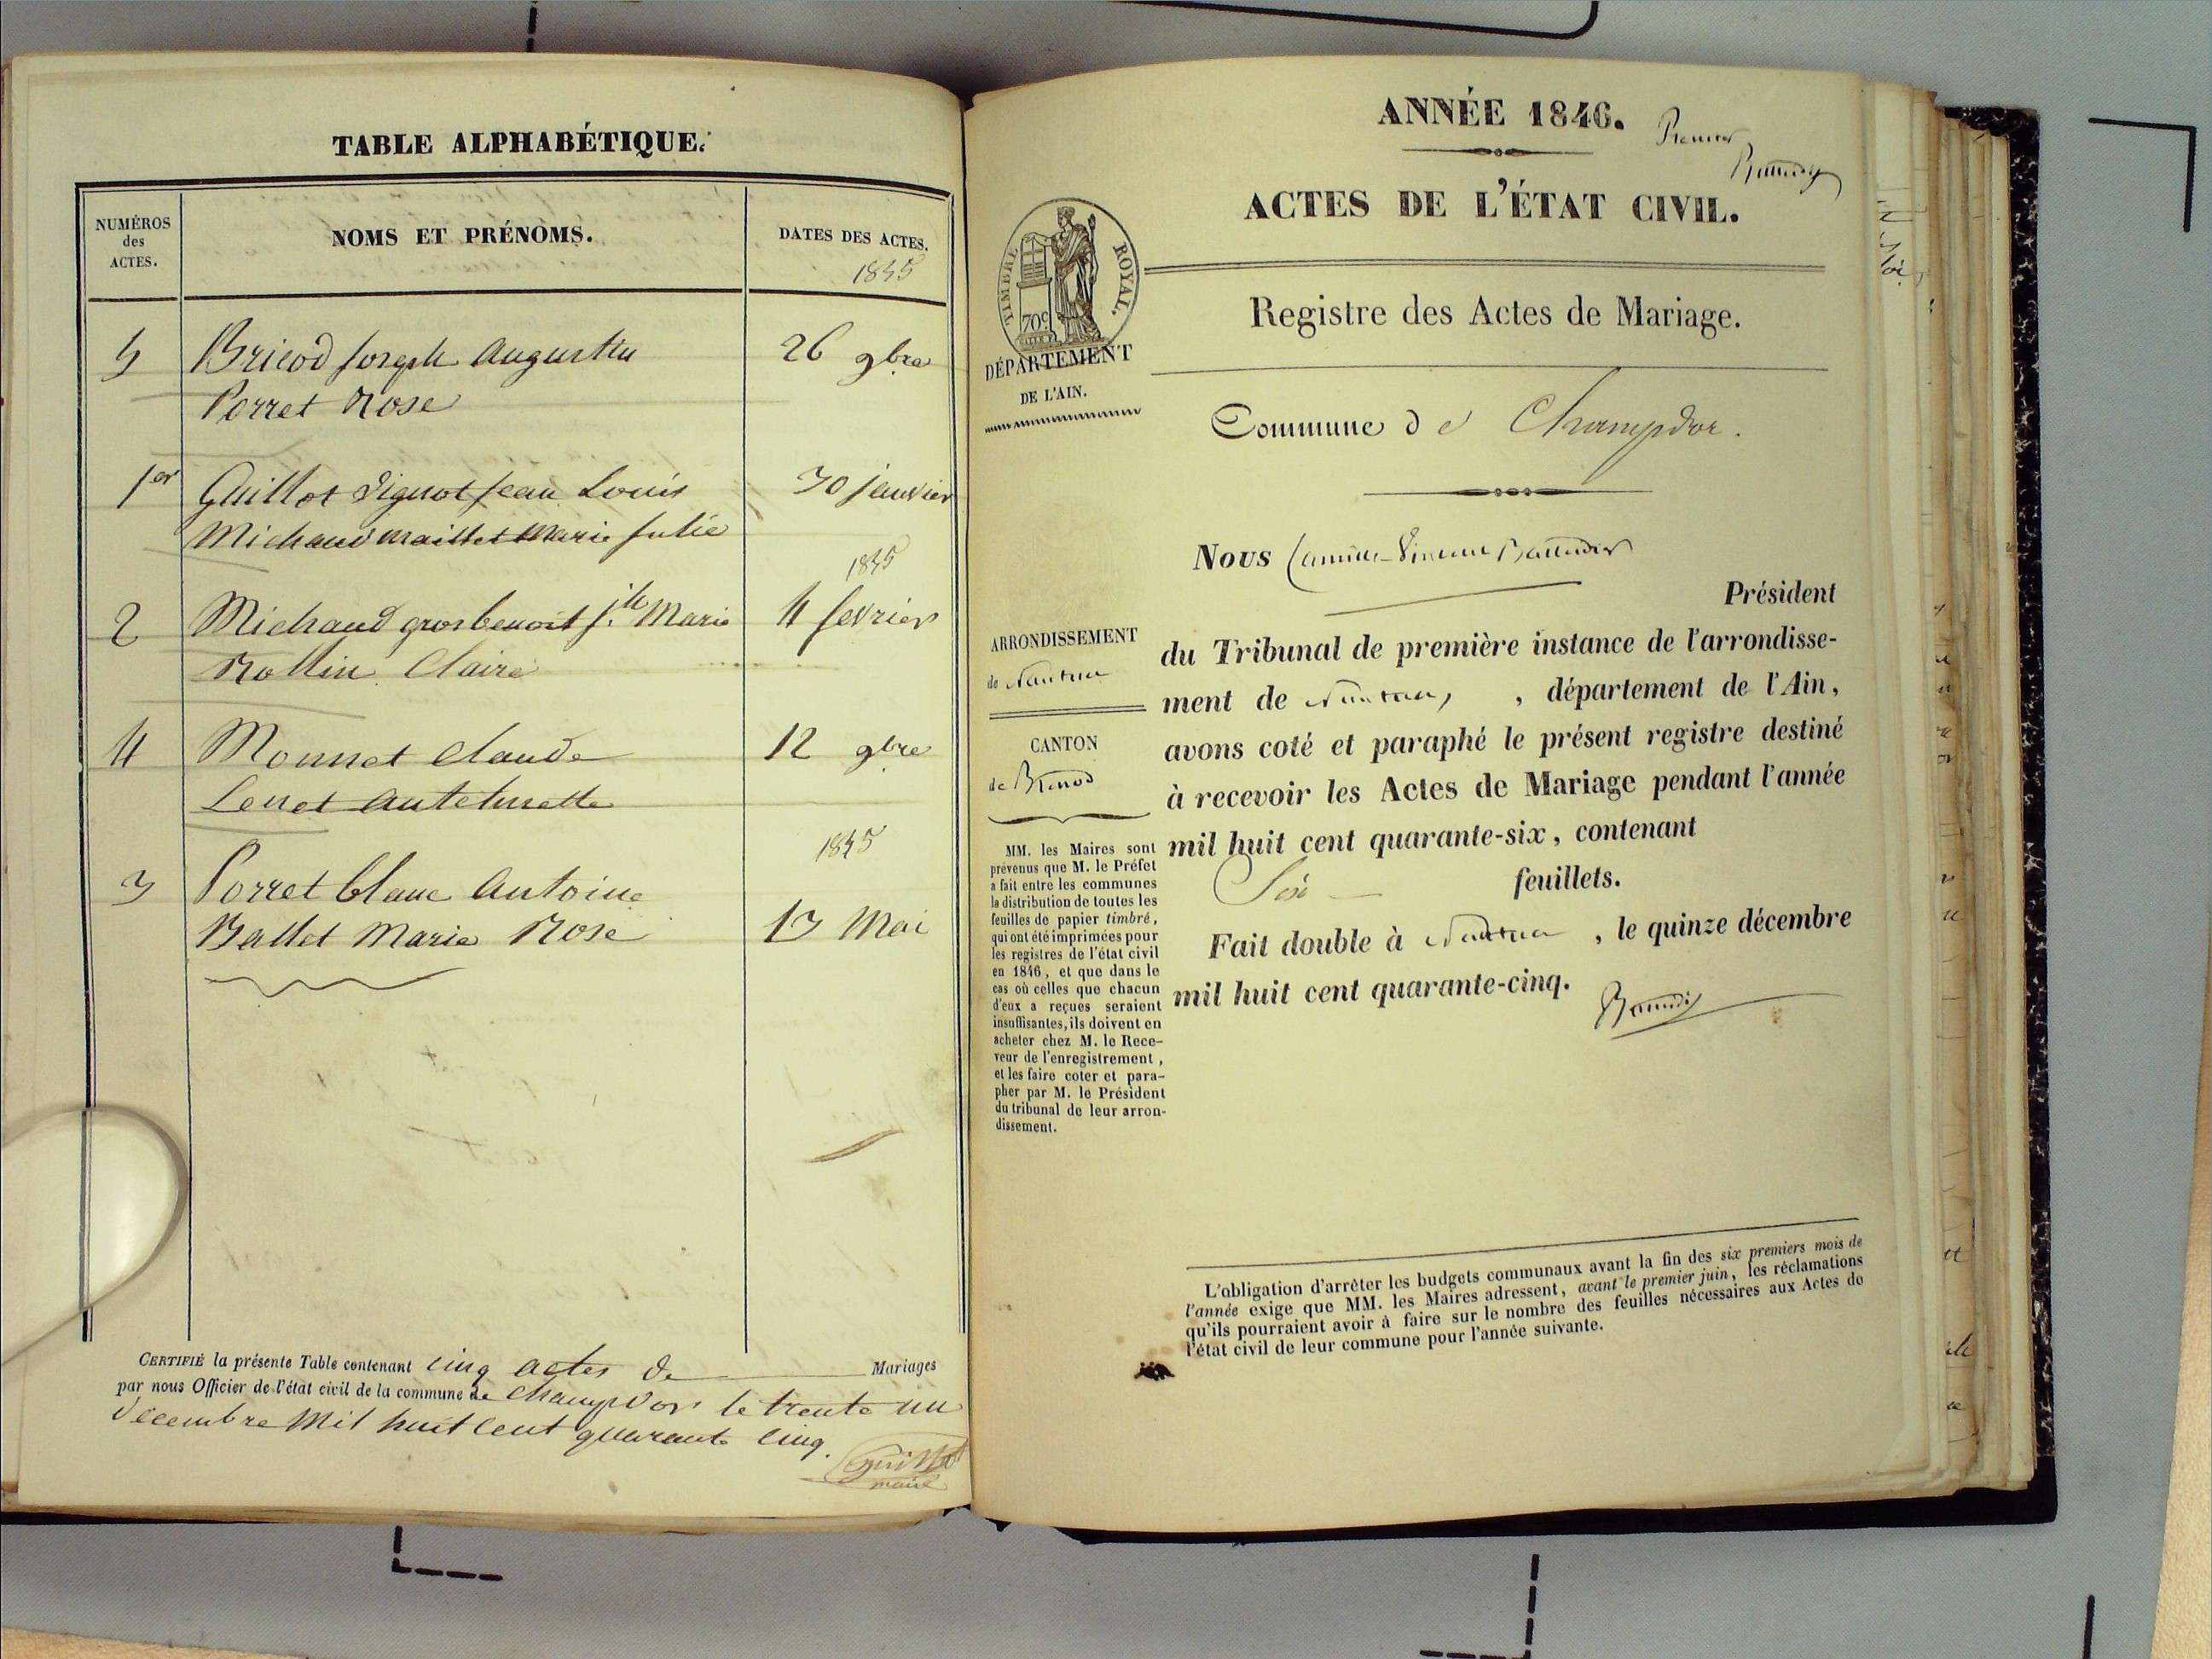 TABLE ALPHABÉTIQUE.
NUMÉROS
des
ACTES.
NOMS ET PRÉNOMS.
DATES DES ACTES.
1845
5 Bricod Joseph Augustin 26 9bre
Perret Rose
1er Guillot Vignot Jean Louis 30 janvier
Michaud Maillet Marie Julie
1845
2 Michaud gros benoit jh Marie 4 fevrier
Rollin Claire
4 Monnet Claude 12 9bre
Antelmette
1845
3 Perret blanc Antoine
Ballet Marie Rose 13 Mai
CERTIFIÉ la présente Table contenant cinq actes de Mariages
par nous Officier de l'état civil de la commune de Champdor le trente un
decembre mil huit cent quarante cinq.
Guillot
maire
ANNÉE 1846.
Premier
ACTES DE L'ÉTAT CIVIL.
TIMBRE ROYAL.
70c
DÉPARTEMENT
DE L'AIN.
Registre des Actes de Mariage.
Commune de Champdor.
Nous Camille-Vincent
Président
ARRONDISSEMENT
de Nantua
CANTON
de Brenod
du Tribunal de première instance de l'arrondisse-
ment de Nantua, , département de l'Ain,
avons coté et paraphé le présent registre destiné
à recevoir les Actes de Mariage pendant l'année
mil huit cent quarante-six, contenant
feuillets.
Fait double à Nantua , le quinze décembre
mil huit cent quarante-cinq.
MM. les Maires sont
prévenus que M. le Préfet
a fait entre les communes
la distribution de toutes les
feuilles de papier timbré,
qui ont été imprimées pour
les registres de l'état civil
en 1846, et que dans le
cas où celles que chacun
d'eux a reçues seraient
insuffisantes, ils doivent en
acheter chez M. le Rece-
veur de l'enregistrement,
et les faire coter et para-
pher par M. le Président
du tribunal de leur arron-
dissement.
L'obligation d'arrêter les budgets communaux avant la fin des six premiers mois de
l'année exige que MM. les Maires adressent, avant le premier juin, les réclamations
qu'ils pourraient avoir à faire sur le nombre des feuilles nécessaires aux Actes de
l'état civil de leur commune pour l'année suivante.